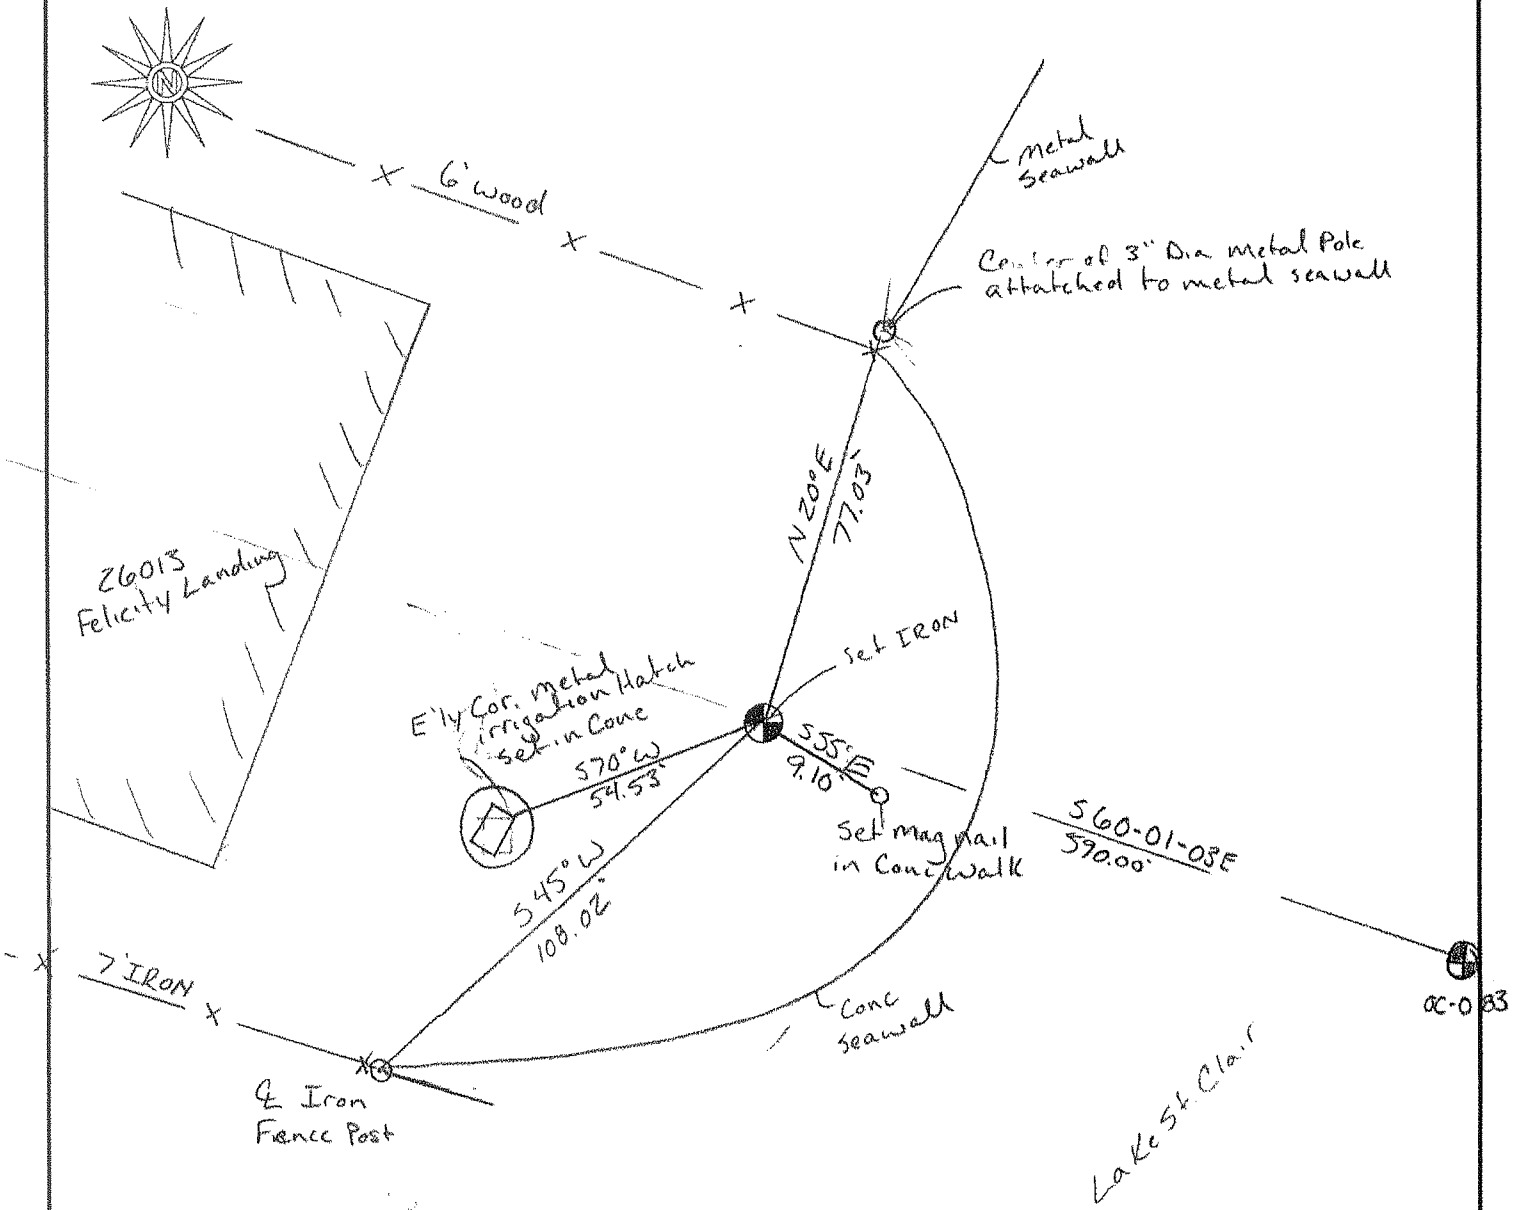 N
6' wood
Metal
Seawall
Center of 3" Dia Metal Pole
attatched to metal seawall
N 20° E
77.03'
26013
Felicity Landing
Set IRON
E'ly Cor. Metal
irrigation Hatch
set in Conc
S70° W
54.53'
S55° E
9.10'
Set mag nail
in Conc Walk
S60-01-03E
590.00'
S45° W
108.02'
7' IRON
Conc
Seawall
℄ Iron
Fence Post
Lake St. Clair